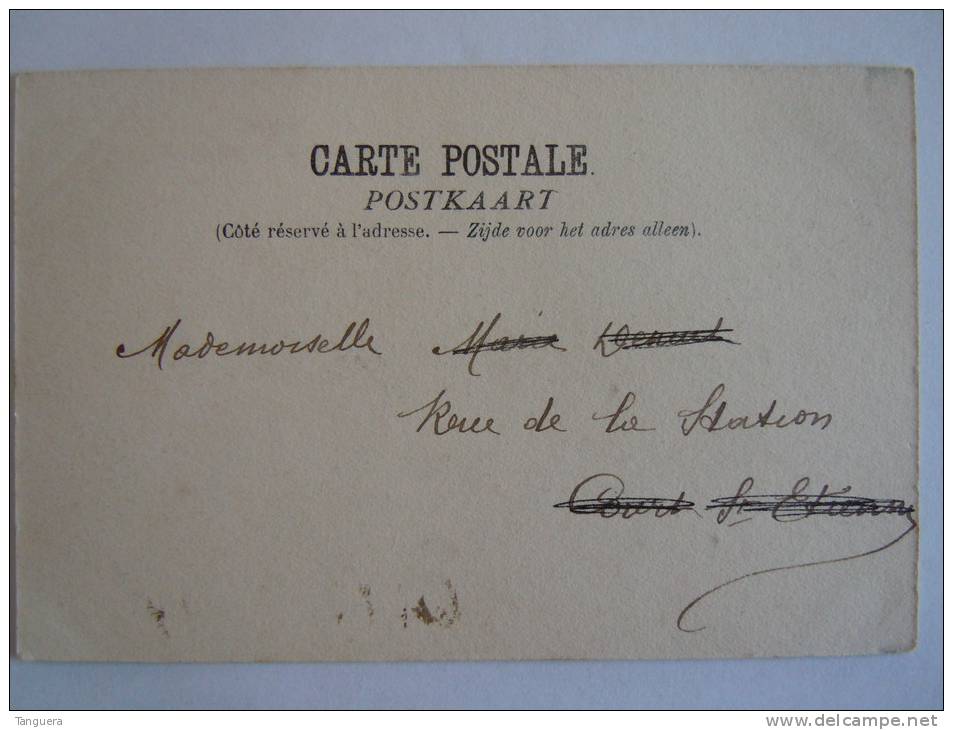 CARTE POSTALE.
POSTKAART
(Côté réservé à l'adresse. — Zijde voor het adres alleen).
Mademoiselle Marie
Rue de la Station
Court St Etienne
Tanguera
www.delcampe.net